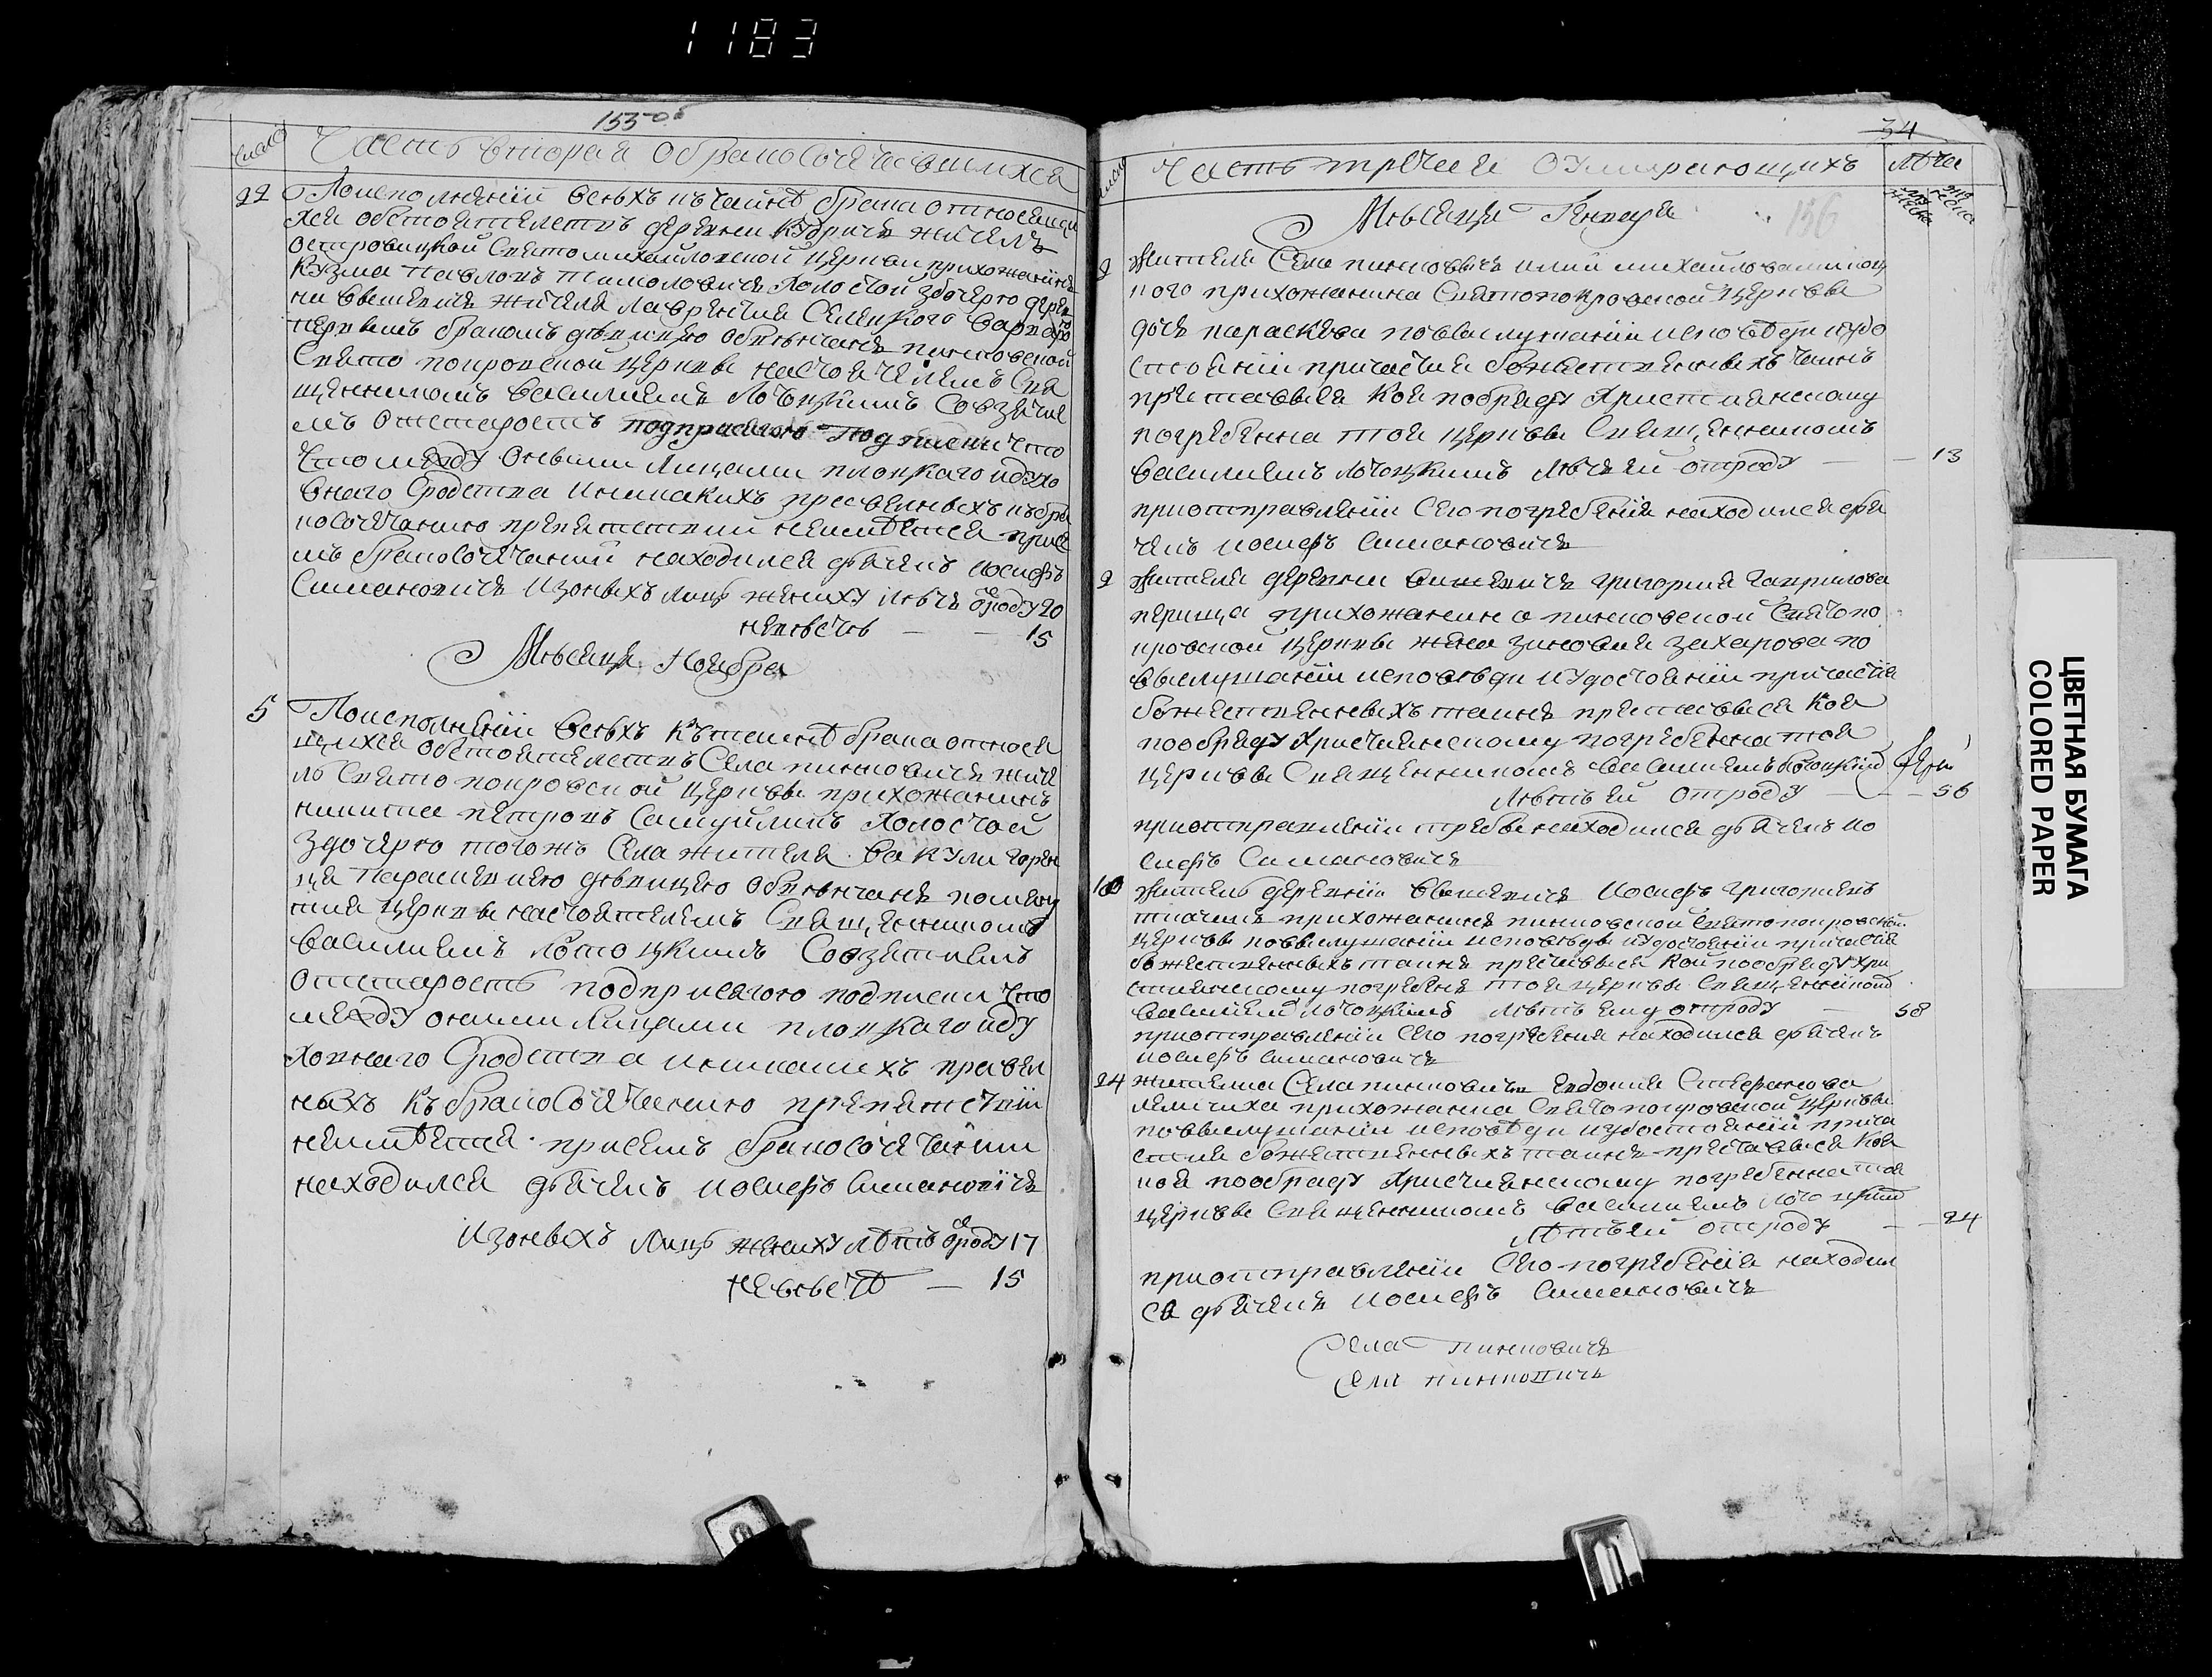 1183
155 об
число
Часть вторая о бракосочетавшихся
22
По исполнении всехъ къ тайнѣ брака относящи
хся обстоятелствъ деревни Кудричъ жителъ
островицкой Свято михайловской церкви прихожанинъ
Кузма Павловъ холостой з дочерю дерев
ни вешевичъ жителя Лаврентия Селецкого варварою
первымъ бракомъ девицею обвѣнчанъ пинковской
Свято покровской церкви настоятелемъ Свя
щенникомъ Василиемъ Лотоцкимъ Совзятие
мъ отстаростъ подписки что
что между оными лицами плоцкаго и духо
внаго Сродства и никакихъ правелныхъ къ бра
косочетанию препятствий неимѣется при се
мъ бракосочетании находился дьячекъ иосифъ
Симановичъ изоныхъ лицъ жениху лѣтъ от роду 20
невѣстѣ — — 15
Мѣсяца Ноября
5
По исполнении всехъ къ тайнѣ брака относя
щихся обстоятелствъ Села пинковичъ жите
ль Свято покровской церкви прихожанинъ
никита петровъ Самуйликъ холостой
з дочерю тогожъ Села жителя вакулы горен
ца Параскевиею дѣвицею обвѣнчанъ помяну
тия церкви настоятелемъ Священникомъ
Василиемъ лотоцкимъ Совзятиемъ
отстаростъ подприсягою подписки что
между оными лицами плоцкаго и ду
ховнаго Сродства и никакихъ правел
ныхъ къ бракосочетанию препятствий
неимѣется при семъ бракосочетании
находился дьячекъ иосифъ Симановичъ
изоныхъ лицъ жениху лѣтъ от роду 17
невѣстѣ — 15
34
число
Часть третея о умирающихъ
лѣта
Мѣсяца Генваря
156
2
жителя Села пинковичъ илии михайлова
ного прихожанина Святопокровской церквы
дочь параскева по выслушании исповѣди и удо
стоении причастия божественныхъ таинъ
преставыся коя по обряду Християнскому
погребенна тоя церквы Священникомъ
василиемъ лотоцкимъ лѣтъ ей отроду — — 13
при отправлении Сего погребения находился дья
чекъ иосифъ Симановичъ
9
жителя деревни вешевичъ григория гаврилова
перица прихожанина пинковской Свято по
кровской церквы жена зиновия захарова по
выслушании исповѣди и удостоении причастия
божественныхъ таинъ преставыся коя
по обряду Християнскому погребенна тоя
церквы Священникомъ василиемъ Лотоцкимъ
лѣтъ ей отроду — — 56
при отправлении требы находился дьячекъ ио
сифъ Симановичъ
10
житель деревни вешевичъ иосифъ григориевъ
прихожанинъ пинковской Святопокровской
церквы по выслушании исповѣды и удостоении причастия
божественныхъ таинъ преставыся кой по обряду Хри
стиянскому погребенъ тоя церквы Священникомъ
василиемъ Лотоцкимъ лѣтъ ему отроду — 58
при отправлении Сего погребения находился дьячекъ
иосифъ Симановичъ
24
жителка Села пинковичъ Евдокия Стефанова
прихожанка Святопокровской церквы
по выслушании исповѣди и удостоении прича
стия божественныхъ таинъ преставыся коя
коя по обряду Християнскому погребенна тоя
церквы Священникомъ василиемъ Лотоцкимъ
лѣтъ ей отроду — — 24
при отправлении Сего погребения находил
ся дьячекъ иосифъ Симановичъ
Села пинковичъ
Села пинковичъ
ЦВЕТНАЯ БУМАГА
COLORED PAPER